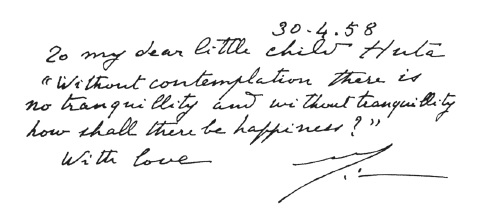 30-4.58
To my dear little child Huta
"Without contemplation there is
no tranquillity and without tranquillity
how shall there be happiness?"
With love